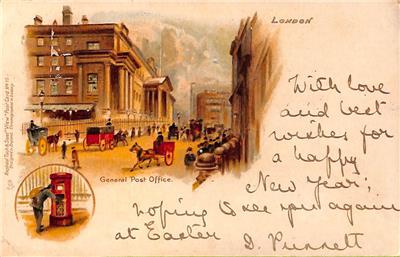 LONDON
General Post Office.
With love
and best
wishes for
a happy
New Year;
hoping to see you again
at Easter D. Punnett